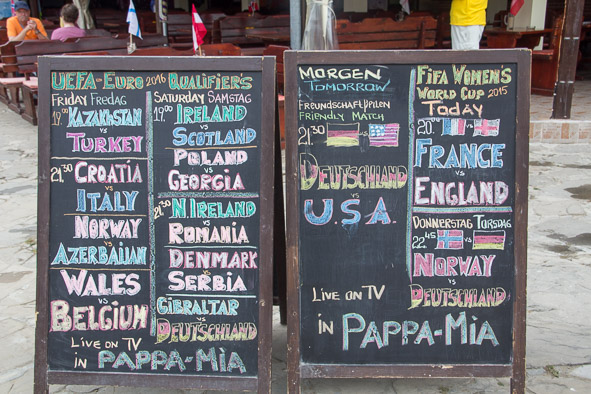 UEFA-Euro 2016 Qualifier's
Friday Fredag
19.00 Kazakhstan
vs
Turkey
21.30 Croatia
vs
Italy
Norway
vs
Azerbaijan
Wales
vs
Belgium
Saturday Samstag
19.00 Ireland
vs
Scotland
Poland
vs
Georgia
21.30 N Ireland
vs
Romania
Denmark
vs
Serbia
Gibraltar
vs
Deutschland
Live on TV
in Pappa-Mia
Morgen
Tomorrow
Friendly Match
21.30
Deutschland
vs
USA.
Fifa Women's
World Cup 2015
Today
France
vs
England
Donnerstag Torsdag
22.45
Norway
vs
Deutschland
Live on TV
in Pappa-Mia